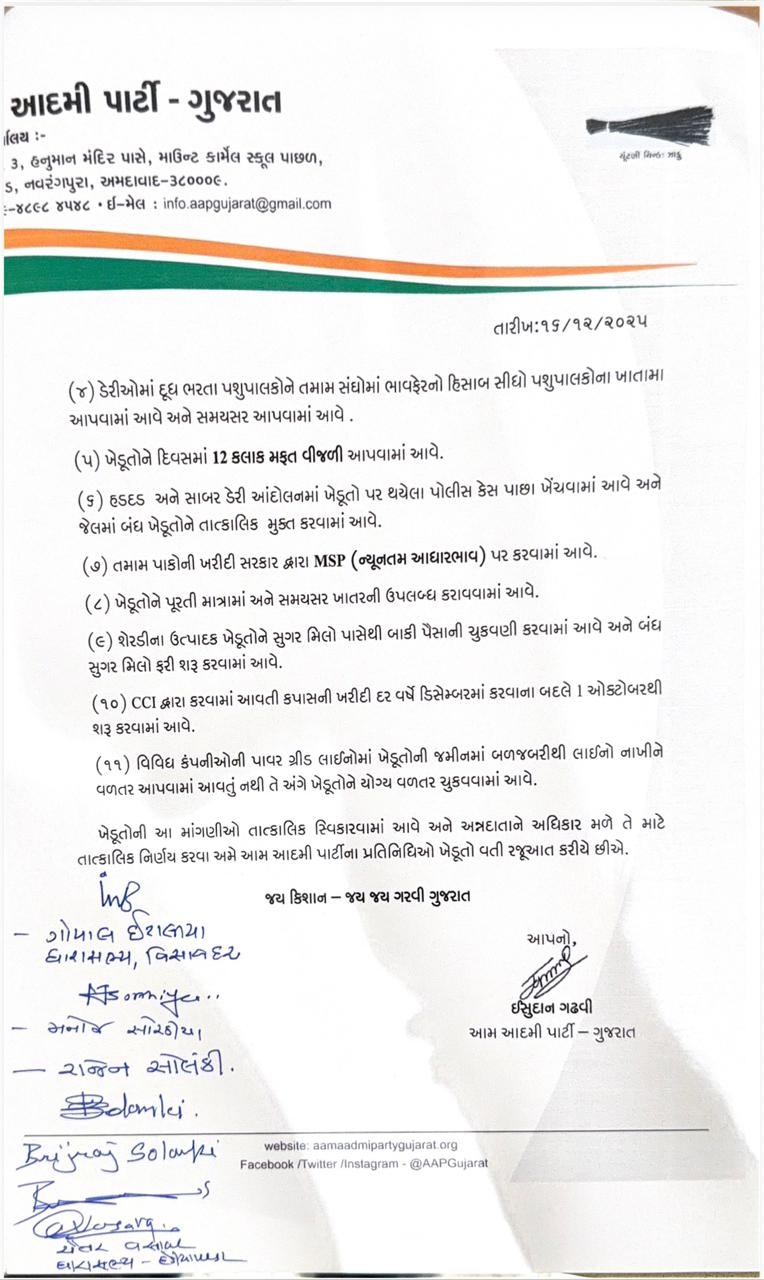 આદમી પાર્ટી - ગુજરાત
ર્યાલય :-
3, હનુમાન મંદિર પાસે, માઉન્ટ કાર્મેલ સ્કૂલ પાછળ,
ડ, નવરંગપુરા, અમદાવાદ-૩૮૦૦૦૯.
-૪૮૯૮ ૪૫૪૮ • ઈ-મેલ : info.aapgujarat@gmail.com
ચૂંટણી ચિન્હ: ઝાડુ
તારીખ:૧૬/૧૨/૨૦૨૫
(૪) ડેરીઓમાં દૂધ ભરતા પશુપાલકોને તમામ સંઘોમાં ભાવફેરનો હિસાબ સીધો પશુપાલકોના ખાતામા
આપવામાં આવે અને સમયસર આપવામાં આવે .
(૫) ખેડૂતોને દિવસમાં 12 કલાક મફત વીજળી આપવામાં આવે.
(૬) હડદડ અને સાબર ડેરી આંદોલનમાં ખેડૂતો પર થયેલા પોલીસ કેસ પાછા ખેંચવામાં આવે અને
જેલમાં બંધ ખેડૂતોને તાત્કાલિક મુક્ત કરવામાં આવે.
(૭) તમામ પાકોની ખરીદી સરકાર દ્વારા MSP (ન્યૂનતમ આધારભાવ) પર કરવામાં આવે.
(૮) ખેડૂતોને પૂરતી માત્રામાં અને સમયસર ખાતરની ઉપલબ્ધ કરાવવામાં આવે.
(૯) શેરડીના ઉત્પાદક ખેડૂતોને સુગર મિલો પાસેથી બાકી પૈસાની ચુકવણી કરવામાં આવે અને બંધ
સુગર મિલો ફરી શરૂ કરવામાં આવે.
(૧૦) CCI દ્વારા કરવામાં આવતી કપાસની ખરીદી દર વર્ષે ડિસેમ્બરમાં કરવાના બદલે 1 ઓક્ટોબરથી
શરૂ કરવામાં આવે.
(૧૧) વિવિધ કંપનીઓની પાવર ગ્રીડ લાઈનોમાં ખેડૂતોની જમીનમાં બળજબરીથી લાઈનો નાખીને
વળતર આપવામાં આવતું નથી તે અંગે ખેડૂતોને યોગ્ય વળતર ચુકવવામાં આવે.
ખેડૂતોની આ માંગણીઓ તાત્કાલિક સ્વિકારવામાં આવે અને અન્નદાતાને અધિકાર મળે તે માટે
તાત્કાલિક નિર્ણય કરવા અમે આમ આદમી પાર્ટીના પ્રતિનિધિઓ ખેડૂતો વતી રજૂઆત કરીયે છીએ.
જય કિશાન – જય જય ગરવી ગુજરાત
- ગોપાલ ઈટાલીયા
ધારાસભ્ય, વિસાવદર
આપનો,
ઈસુદાન ગઢવી
આમ આદમી પાર્ટી – ગુજરાત
- મનોજ સોરઠીયા
- રાજન સોલંકી.
Solanki.
website: aamaadmipartygujarat.org
Facebook /Twitter /Instagram - @AAPGujarat
Brijraj Solanki
ચૈતર વસાવા
ધારાસભ્ય - ડેડીયાપાડા